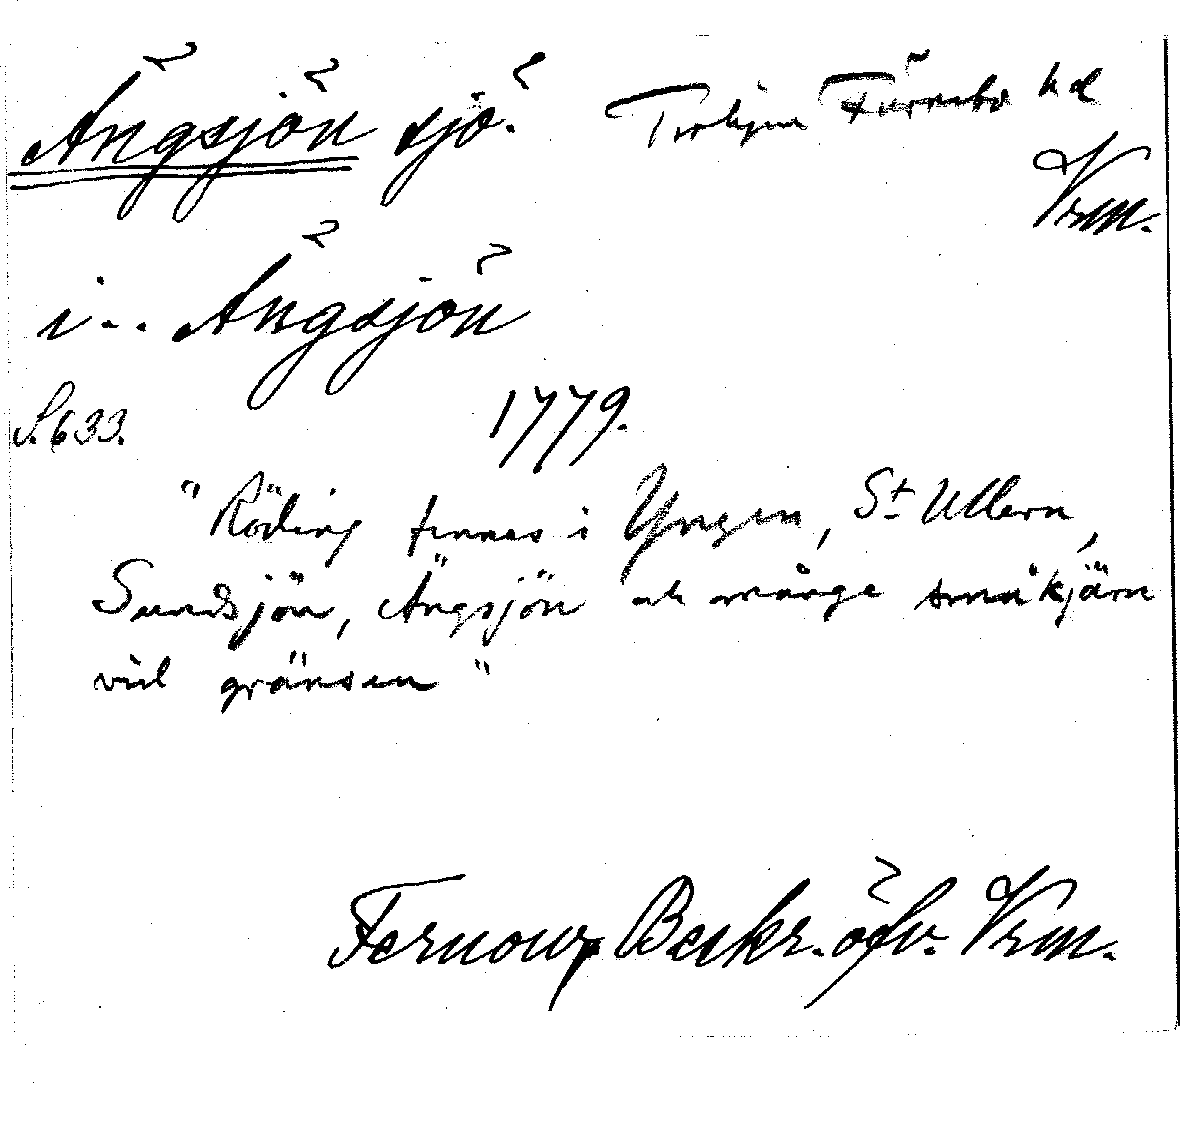 Ängsjön sjö. Trehjem Färnebo hd
Vrm.
i.. Ängsjön
S. 633. 1779.
"Röding finnes i Yngen, St Ullern,
Sundsjön, Ängsjön och många småkjärn
vid gränsen"
Fernow, Beskr. öfv. Vrm.